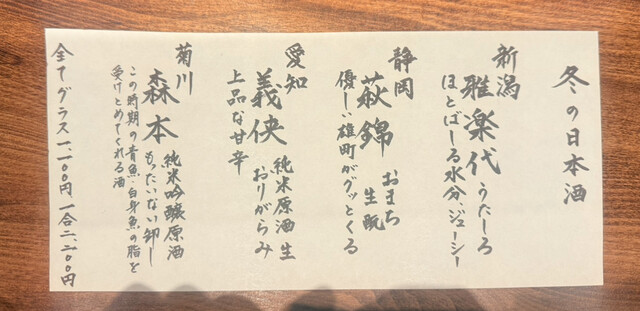 冬の日本酒
新潟
雅楽代 うたしろ
ほとばしる水分、ジューシー
静岡
萩錦 おまち 生酛
優しい雄町がグッとくる
愛知
義侠 純米原酒生 おりがらみ
上品な甘辛
菊川
森本 純米吟醸原酒 もったいない卸し
この時期の青魚・白身魚の脂を
受けとめてくれる酒
全てグラス一、一〇〇円 一合二、二〇〇円